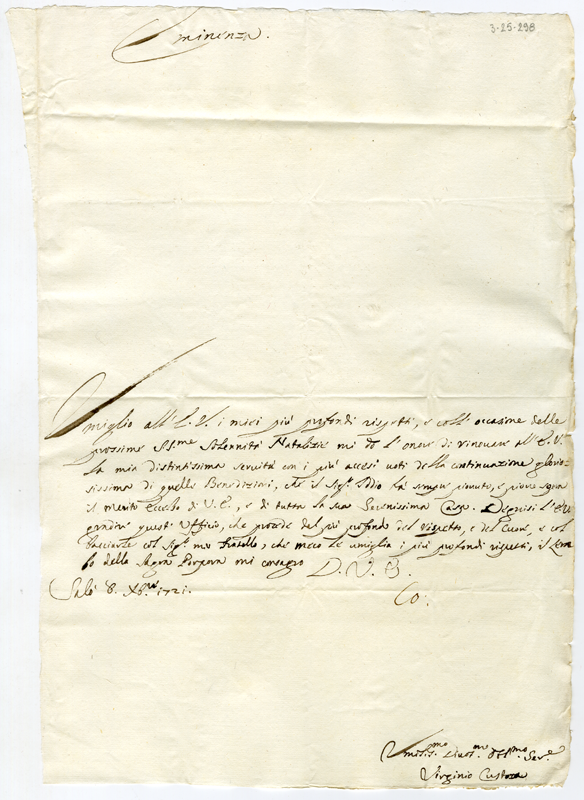 3-25-298
Eminenza.
Umiglio all'E. V. i miei più profondi rispetti, e coll'occasione delle
prossime SS.me Solennità Natalizie mi dò l'onore di rinovare all'E. V.
la mia distintissima servitù con i più accesi voti della continuazione glorio-
sissima di quelle Benedizioni, che il Sig.r Iddio hà sempre piovuto, e piove sopra
il merito Eccelso di V. E., e di tutta la sua Serenissima Casa.
gradire questi Ufficij, che procede dal più profondo del rispetto, e del Cuore, e col
bacciarle col Sig.r mio Fratello, che meco Le umiglia i più profondi rispetti, il Lem-
bo della Sagra Porpora mi consagro
D. V. E.
Salò 8. Xbre 1721.
Co:
Umiliss.mo Divot.mo Obl.mo Ser.e
Virginio Custoza